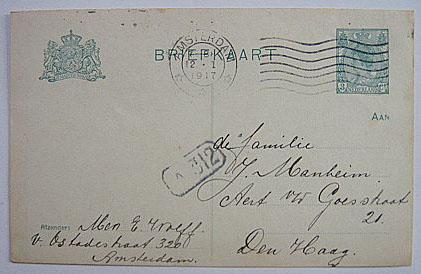 BRIEFKAART
AMSTERDAM
12.1
1917
NEDERLAND
AAN
de familie
J. Manheim
Aert v/d Goesstraat
21.
Den Haag.
312
Afzender:
Men E. Wolff.
v. Ostadestraat 320
Amsterdam.